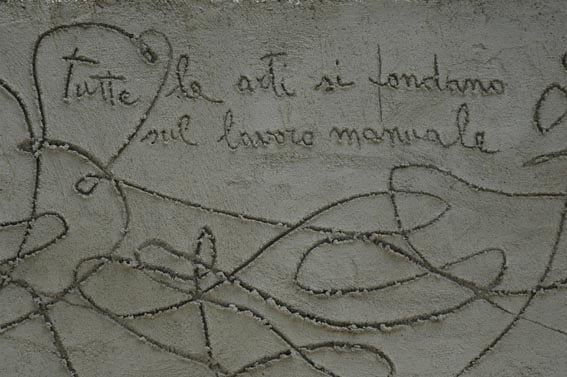 Tutte le arti si fondano
sul lavoro manuale